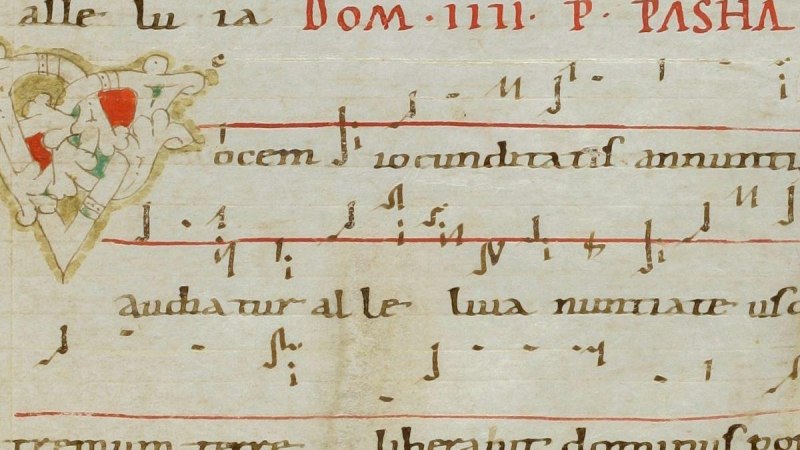 alle lu ia DOM · IIII · P · PASHA
Vocem iocunditatis annunti
audiatur al le luia nuntiate usq
tremum terre liberavit dominus pop